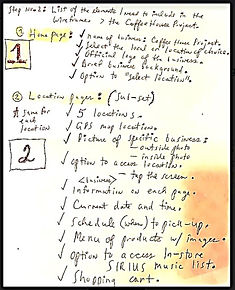 Step No. 2: List of the elements I need to include in the
Wireframes > the Coffee House Project.
① Home page:
✓ name of business: Coffee House Project.
✓ Select the local or "location" of choice.
✓ Official logo of the business.
✓ Brief business background.
✓ option to "select location".
1
② Location pages: (Sub-set)
A same for each location
✓ 5 locations.
✓ GPS map locations.
✓ Picture of specific business:
— outside photo
— inside photo
✓ option to access location.
— tap the screen.
2
✓ <business> Information on each page.
✓ Current date and time.
✓ Schedule (when) to pick-up.
✓ Menu of products w/ images.
✓ Option to access In-store
SIRIUS music list.
✓ Shopping cart.